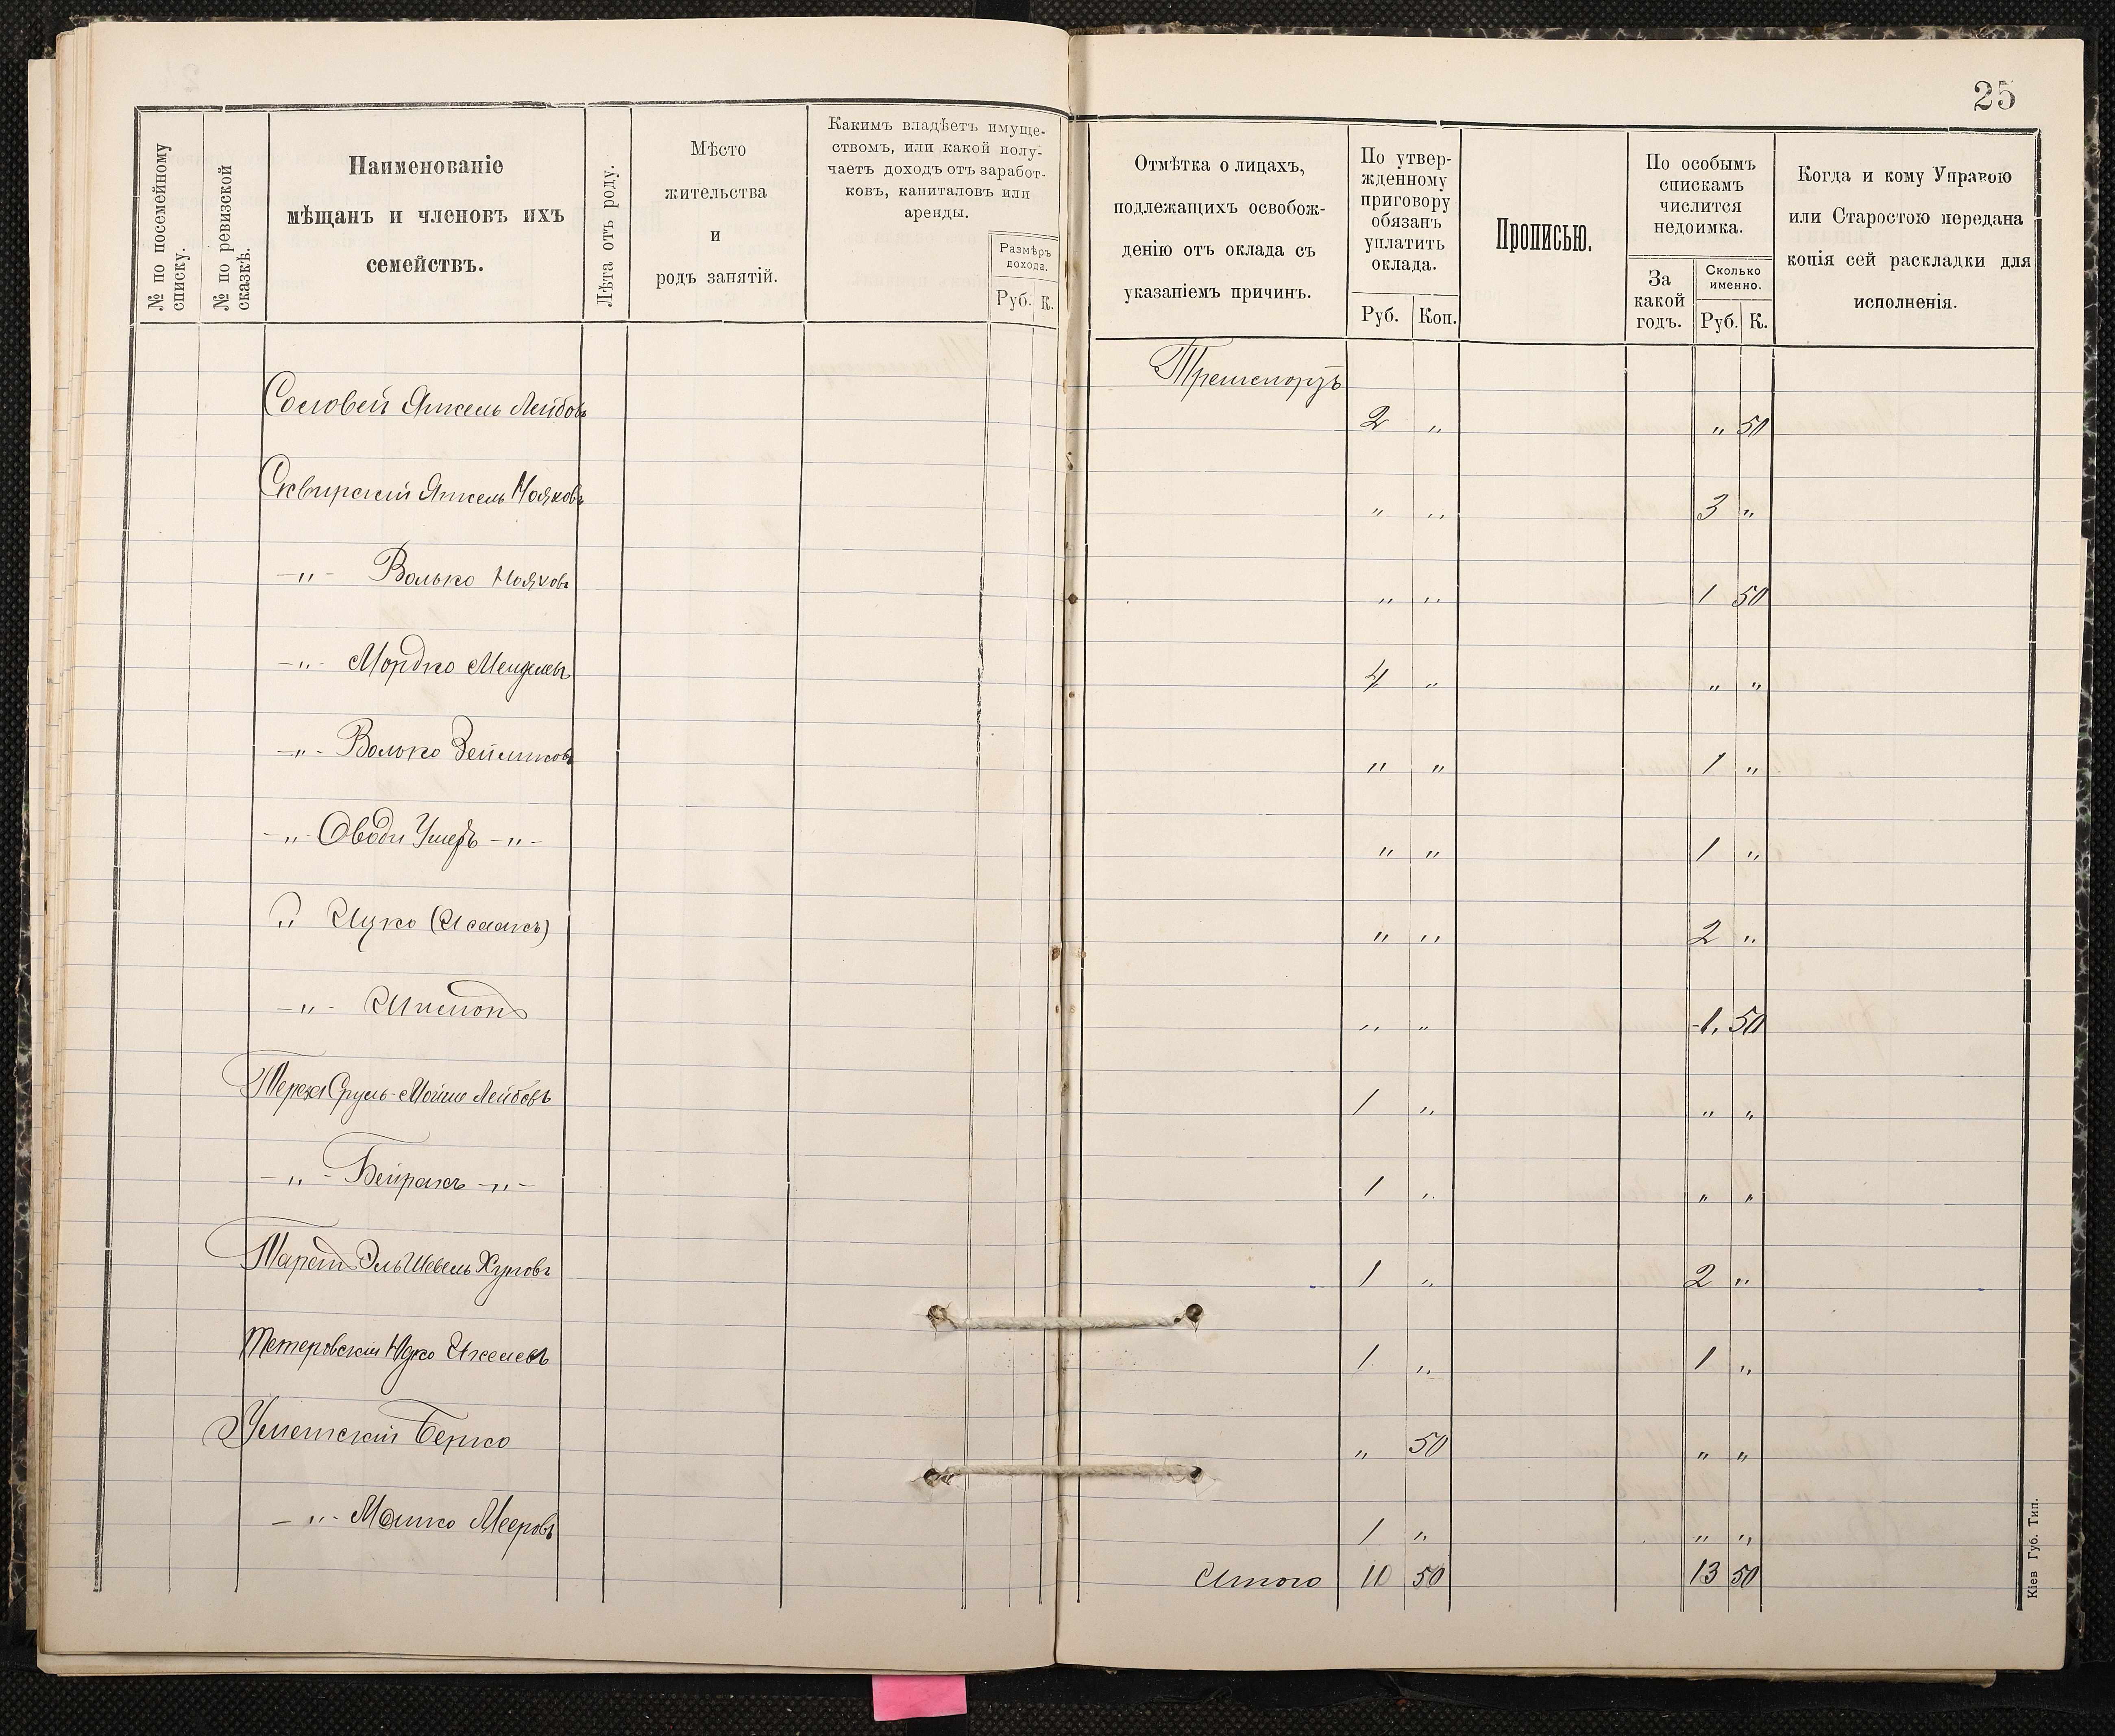 25
№ по посемейному
списку.
№ по ревизской
сказкѣ.
Наименованіе
мѣщанъ и членовъ ихъ
семействъ.
Лѣта отъ роду.
Мѣсто
жительства
и
родъ занятій.
Какимъ владѣетъ имуще-
ствомъ, или какой полу-
чаетъ доходъ отъ заработ-
ковъ, капиталовъ или
аренды.
Размѣръ
дохода.
Руб. К.
Отмѣтка о лицахъ,
подлежащихъ освобож-
денію отъ оклада съ
указаніемъ причинъ.
По утвер-
жденному
приговору
обязанъ
уплатить
оклада.
Руб. Коп.
Прописью.
По особымъ
спискамъ
числится
недоимка.
За
какой
годъ.
Сколько
именно.
Руб. К.
Когда и кому Управою
или Старостою передана
копія сей раскладки для
исполненія.
Соловей Янкель Лейбовъ 2 " " 50
Сквирскій Янкель " " 3 "
-"- Волько " " 1 50
-"- Мордко 4 " " "
-"- Волько " " 1 "
-"- Овадій Ушеръ -"- " " 1 "
" Ицко (Исаакъ) " " 2 "
-"- " " 1 50
Сруль-Мойше Лейбовъ 1 " " "
-"- -"- 1 " " "
1 " 2 "
Тетеровскій 1 " 1 "
Берко " 50 " "
-"- Мошко Мееровъ 1 " " "
Итого 10 50 13 50
Кіев Губ. Тип.